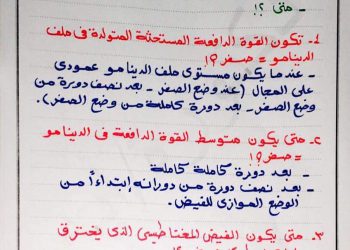 - متى ؟!
1- تكون القوة الدافعة المستحثة المتولدة فى ملف
الدينامو = صفر؟!
- عندما يكون مستوى ملف الدينامو عمودى
على المجال (عند وضع الصفر - بعد نصف دورة من
وضع الصفر - بعد دورة كاملة من وضع الصفر).
2- متى يكون متوسط القوة الدافعة فى الدينامو
= صفر؟!
- بعد دورة كاملة كاملة
- بعد نصف دورة من دورانه إبتداءاً من
الوضع الموازى للفيض.
3- متى يكون الفيض المغناطيسى الذى يخترق